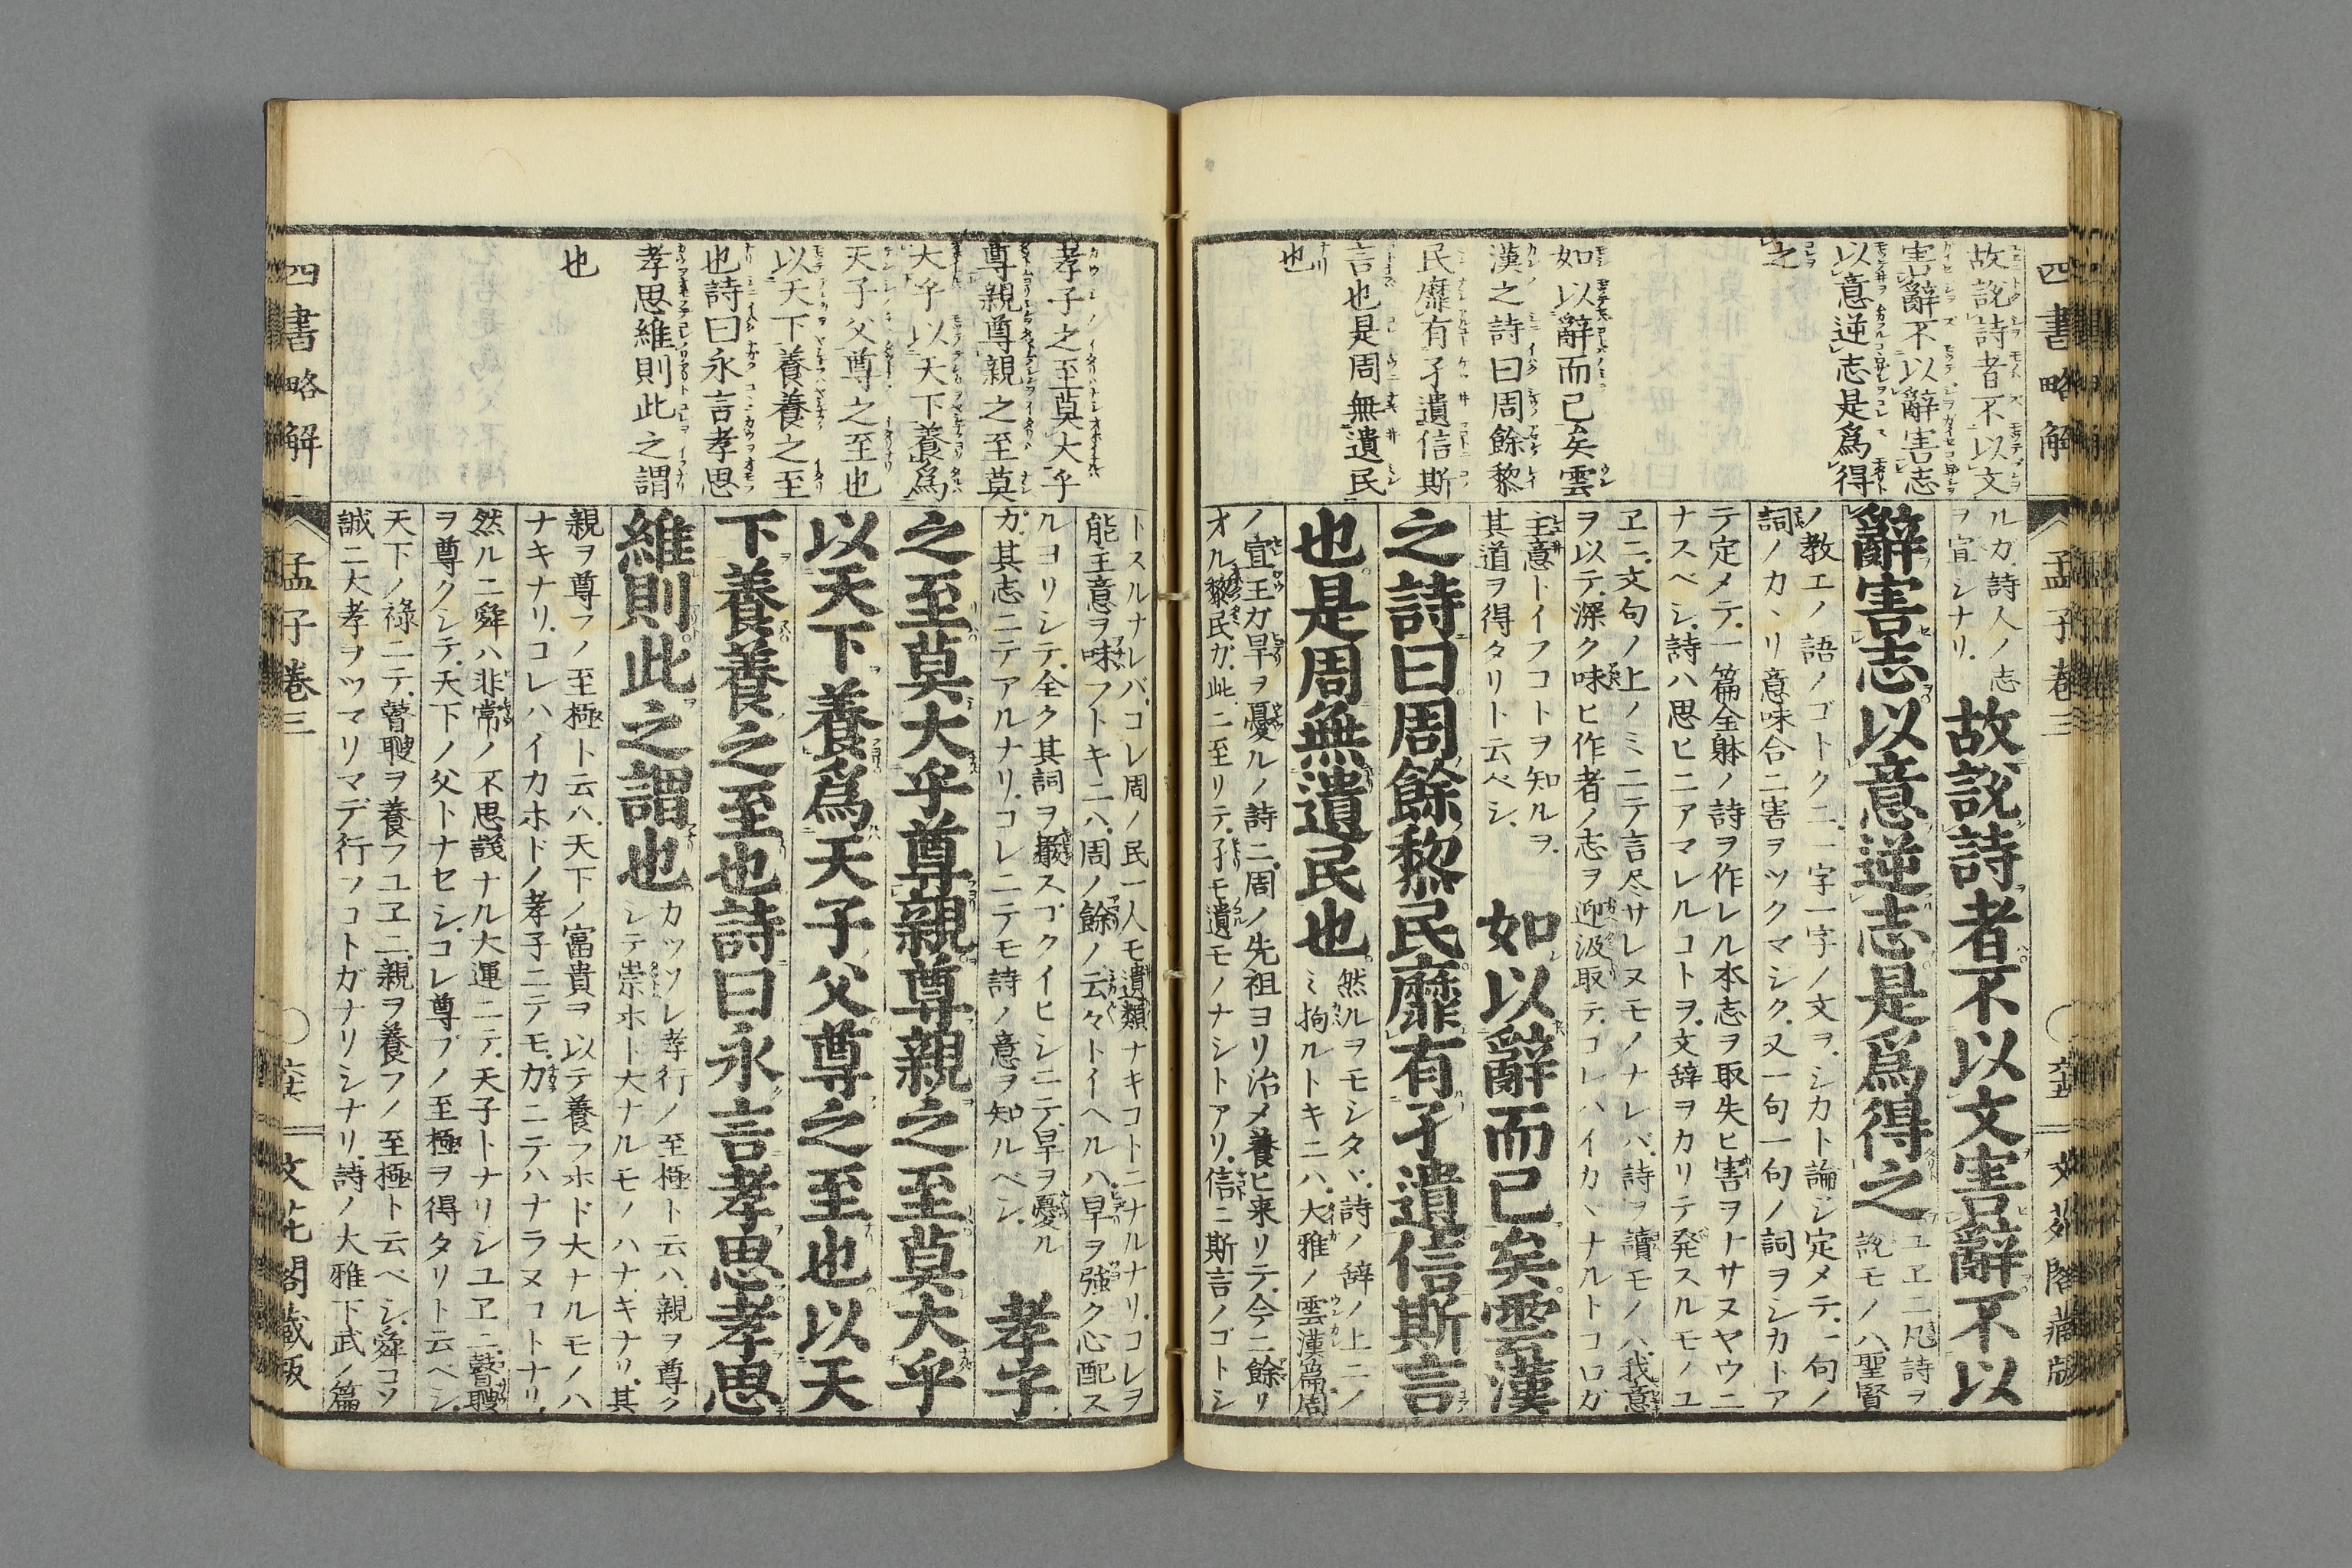 四書略解
孟子卷三
文苑閣藏版
故說詩者不以文
害辭不以辭害志
以意逆志是爲得
之
如以辭而已矣雲
漢之詩曰周餘黎
民靡有孑遺信斯
言也是周無遺民
也
ルカ詩人ノ志
ヲ宜シナリ
故說詩者不以文害辭不以
辭害志以意逆志是爲得之
ユヱニ凡詩ヲ
說モノハ聖賢
ノ教エノ語ノゴトクニ一字一字ノ文ヲシカト論シ定メテ一句ノ
詞ノカヽリ意味合ニ害ヲツクマシク又一句一句ノ詞ヲシカトア
テ定メテ一篇全躰ノ詩ヲ作レル本志ヲ取失ヒ害ヲナサヌヤウニ
ナスベシ詩ハ思ヒニアマレルコトヲ文辞ヲカリテ発スルモノユ
ヱニ文句ノ上ノミニテ言尽サレヌモノナレバ詩ヲ讀モノハ我意
ヲ以テ深ク味ヒ作者ノ志ヲ迎汲取テコレハイカヽナルトコロガ
主意トイフコトヲ知ルヲ
其道ヲ得タリト云ベシ
如以辭而已矣雲漢
之詩曰周餘黎民靡有孑遺信斯言
也是周無遺民也
然ルヲモシタヾ詩ノ辞ノ上ニノ
ミ拘ルトキニハ大雅ノ雲漢篇周
ノ宣王ガ旱ヲ憂ルノ詩ニ周ノ先祖ヨリ治メ養ヒ来リテ今ニ餘リ
オル黎民ガ此ニ至リテ孑モ遺モノナシトアリ信ニ斯言ノゴトシ
孝子之至莫大乎
尊親尊親之至莫
大乎以天下養爲
天子父尊之至也
以天下養養之至
也詩曰永言孝思
孝思維則此之謂
也
トスルナレバコレ周ノ民一人モ遺類ナキコトニナルナリコレヲ
能主意ヲ味フトキニハ周ノ餘ノ云々トイヘルハ旱ヲ強ク心配ス
ルヨリシテ全ク其詞ヲ嚴スゴクイヒシニテ旱ヲ憂ル
ガ其志ニテアルナリコレニテモ詩ノ意ヲ知ルベシ
孝子
之至莫大乎尊親尊親之至莫大乎
以天下養爲天子父尊之至也以天
下養養之至也詩曰永言孝思孝思
維則此之謂也
カツソレ孝行ノ至極ト云ハ親ヲ尊ク
シテ崇ホト大ナルモノハナキナリ其
親ヲ尊フノ至極ト云ハ天下ノ富貴ヲ以テ養フホド大ナルモノハ
ナキナリコレハイカホドノ孝子ニテモ力ニテハナラヌコトナリ
然ルニ舜ハ非常ノ不思議ナル大運ニテ天子トナリシユヱニ瞽瞍
ヲ尊クシテ天下ノ父トナセシコレ尊フノ至極ヲ得タリト云ベシ
天下ノ祿ニテ瞽瞍ヲ養フユヱニ親ヲ養フノ至極ト云ベシ舜コソ
誠ニ大孝ヲツマリマデ行フコトガナリシナリ詩ノ大雅下武ノ篇
四書略解
孟子卷三
文苑閣藏版